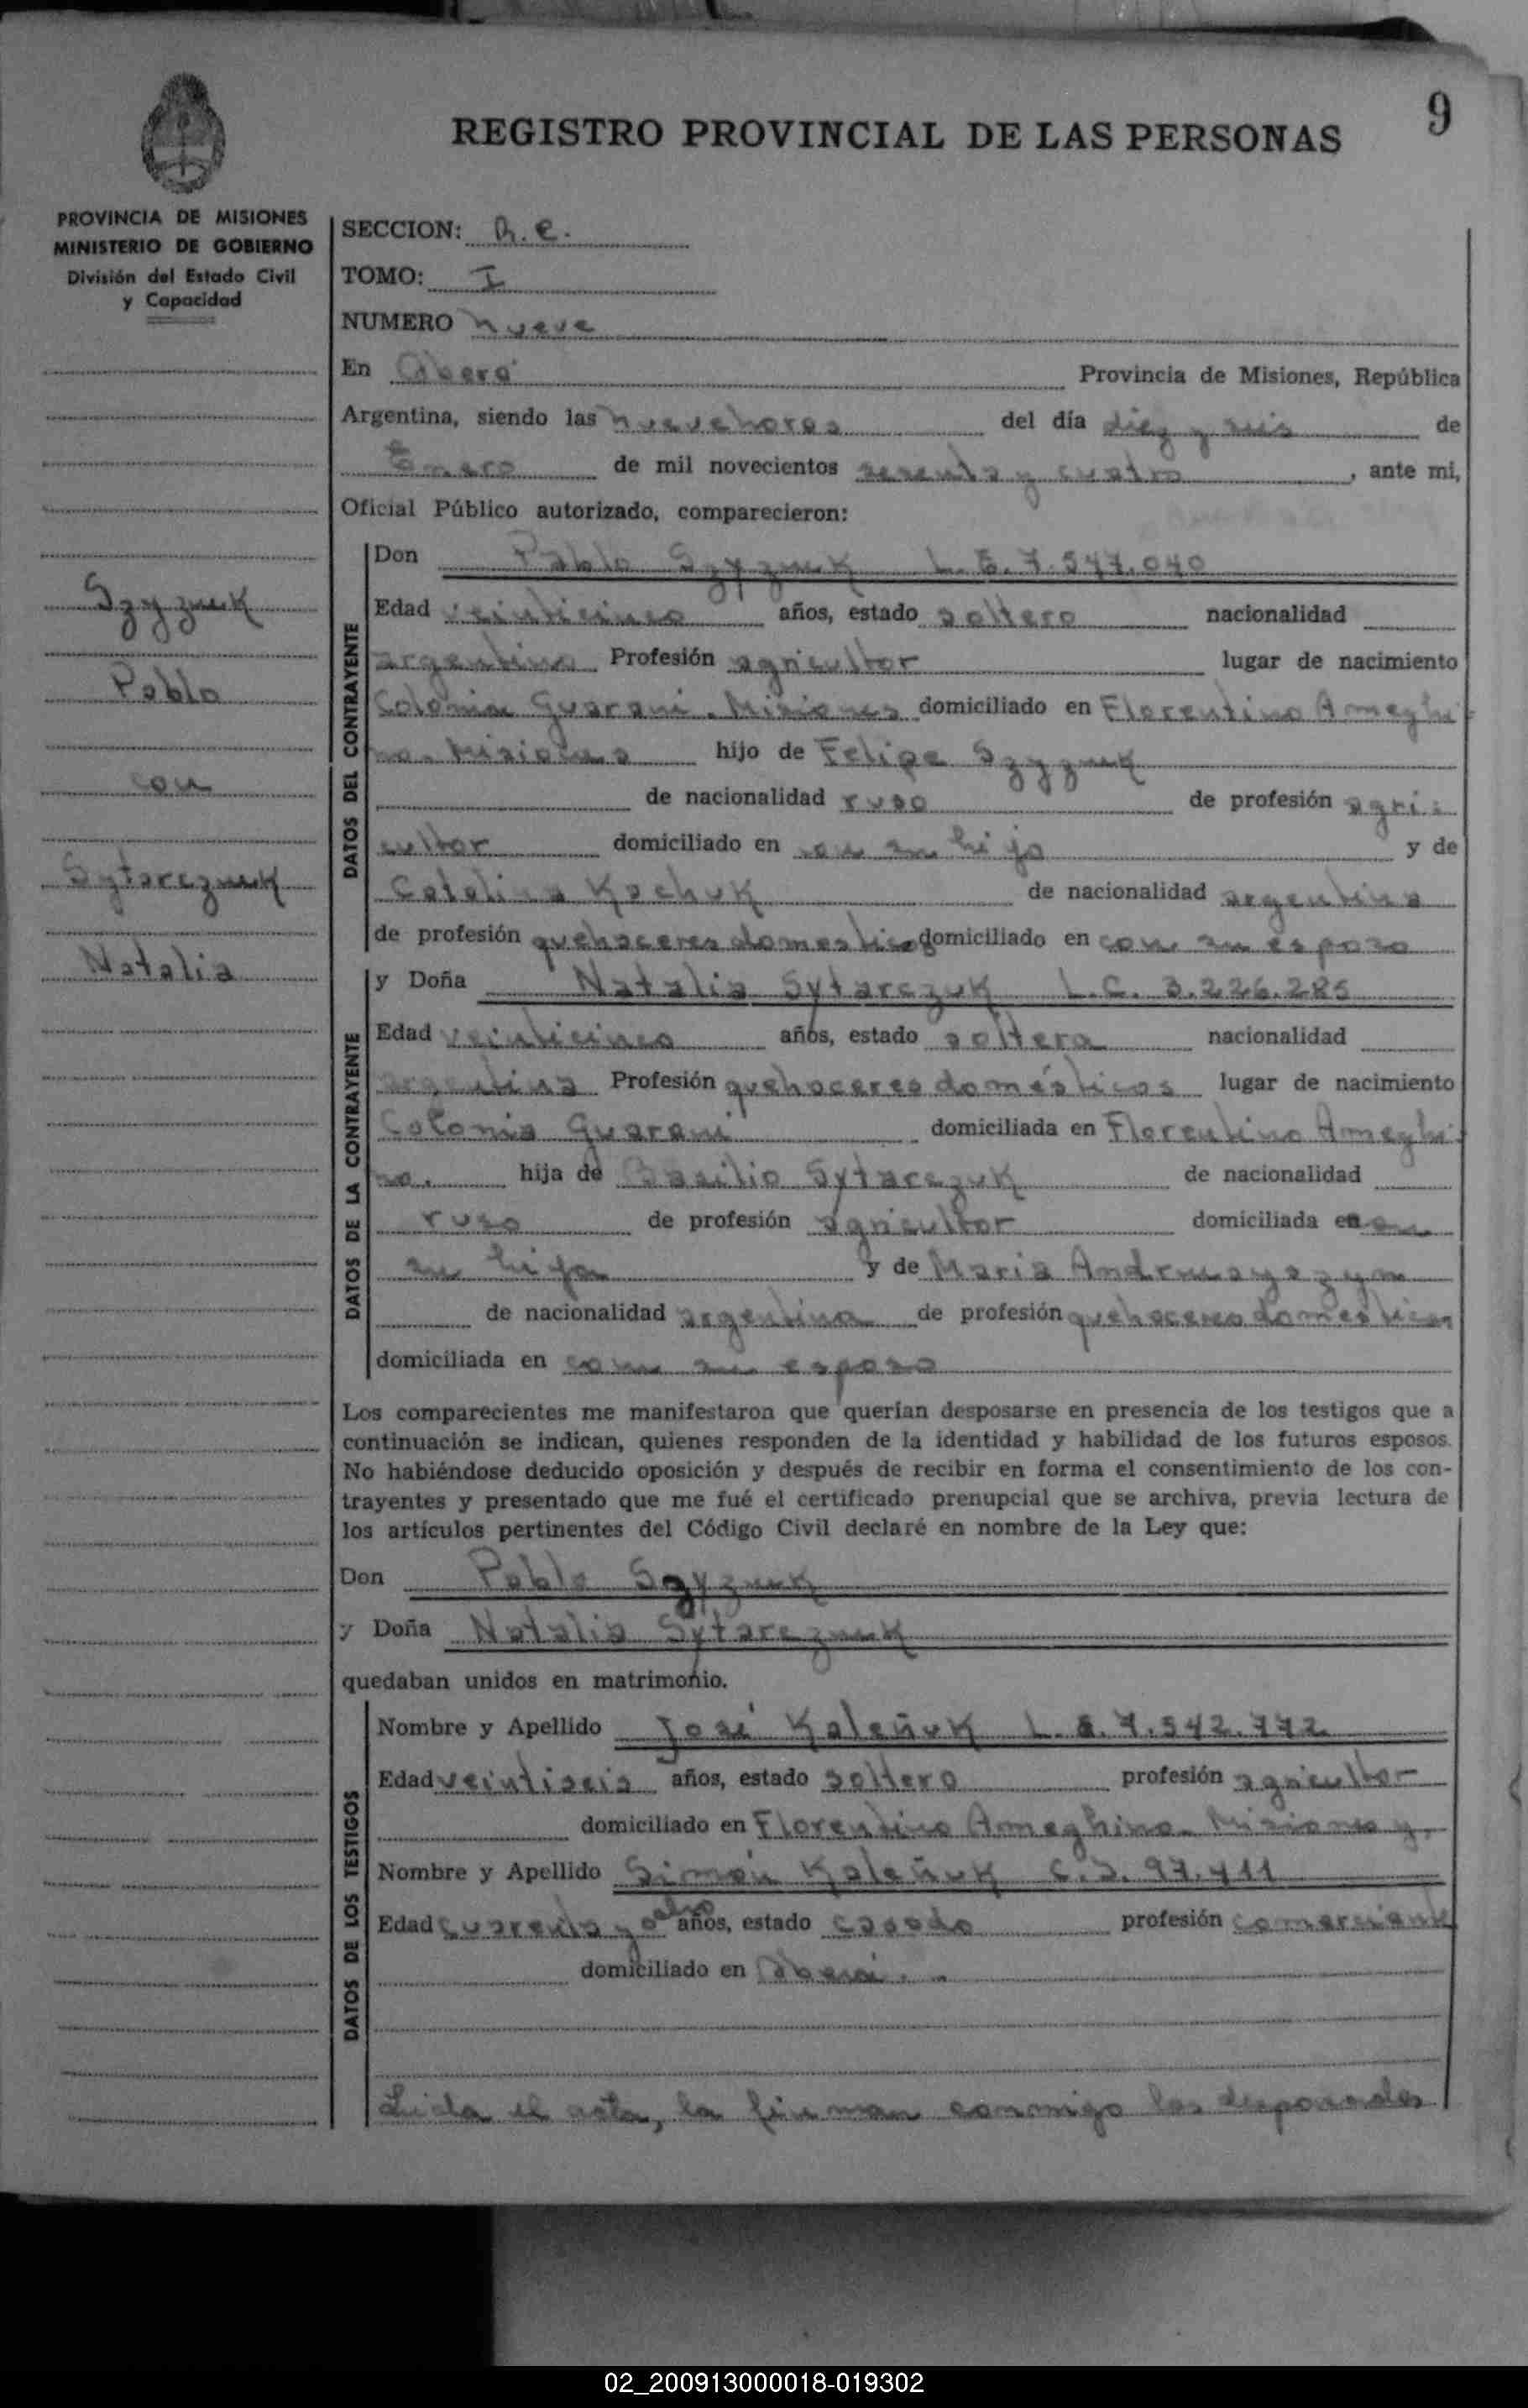 9
REGISTRO PROVINCIAL DE LAS PERSONAS
PROVINCIA DE MISIONES
MINISTERIO DE GOBIERNO
División del Estado Civil
y Capacidad
Szyzuk
Pablo
con
Sytarczuk
Natalia
SECCION: R.C.
TOMO: I
NUMERO nueve
En Oberá Provincia de Misiones, República
Argentina, siendo las nueve horas del día diez y seis de
Enero de mil novecientos sesenta y cuatro, ante mi,
Oficial Público autorizado, comparecieron:
DATOS DEL CONTRAYENTE
Don Pablo Szyzuk L.E. 7.547.040
Edad veinticinco años, estado soltero nacionalidad
argentino Profesión agricultor lugar de nacimiento
Colonia Guaraní. Misiones domiciliado en Florentino Ameghi
no. Misiones hijo de Felipe Szyzuk
de nacionalidad ruso de profesión agri-
cultor domiciliado en con su hijo y de
Catalina Kachuk de nacionalidad argentina
de profesión quehaceres domesticos domiciliado en con su esposo
DATOS DE LA CONTRAYENTE
y Doña Natalia Sytarczuk L.C. 3.226.285
Edad veinticinco años, estado soltera nacionalidad
argentina Profesión quehaceres domésticos lugar de nacimiento
Colonia Guaraní domiciliada en Florentino Ameghi-
no. hija de Basilio Sytarczuk de nacionalidad
ruso de profesión agricultor domiciliada en con
su hija y de Maria
de nacionalidad argentina de profesión quehaceres domesticos
domiciliada en con su esposo
Los comparecientes me manifestaron que querían desposarse en presencia de los testigos que a
continuación se indican, quienes responden de la identidad y habilidad de los futuros esposos.
No habiéndose deducido oposición y después de recibir en forma el consentimiento de los con-
trayentes y presentado que me fué el certificado prenupcial que se archiva, previa lectura de
los artículos pertinentes del Código Civil declaré en nombre de la Ley que:
Don Pablo Szyzuk
y Doña Natalia Sytarczuk
quedaban unidos en matrimonio.
DATOS DE LOS TESTIGOS
Nombre y Apellido José Kaleñuk L.E. 7.542.772
Edad veintiseis años, estado soltero profesión agricultor
domiciliado en Florentino Ameghino. Misiones y
Nombre y Apellido Simón Kaleñuk C.I. 97.411
Edad cuarenta y ocho años, estado casado profesión comerciante
domiciliado en Oberá.
Leida el acta, la firman conmigo los desposados
02_200913000018-019302